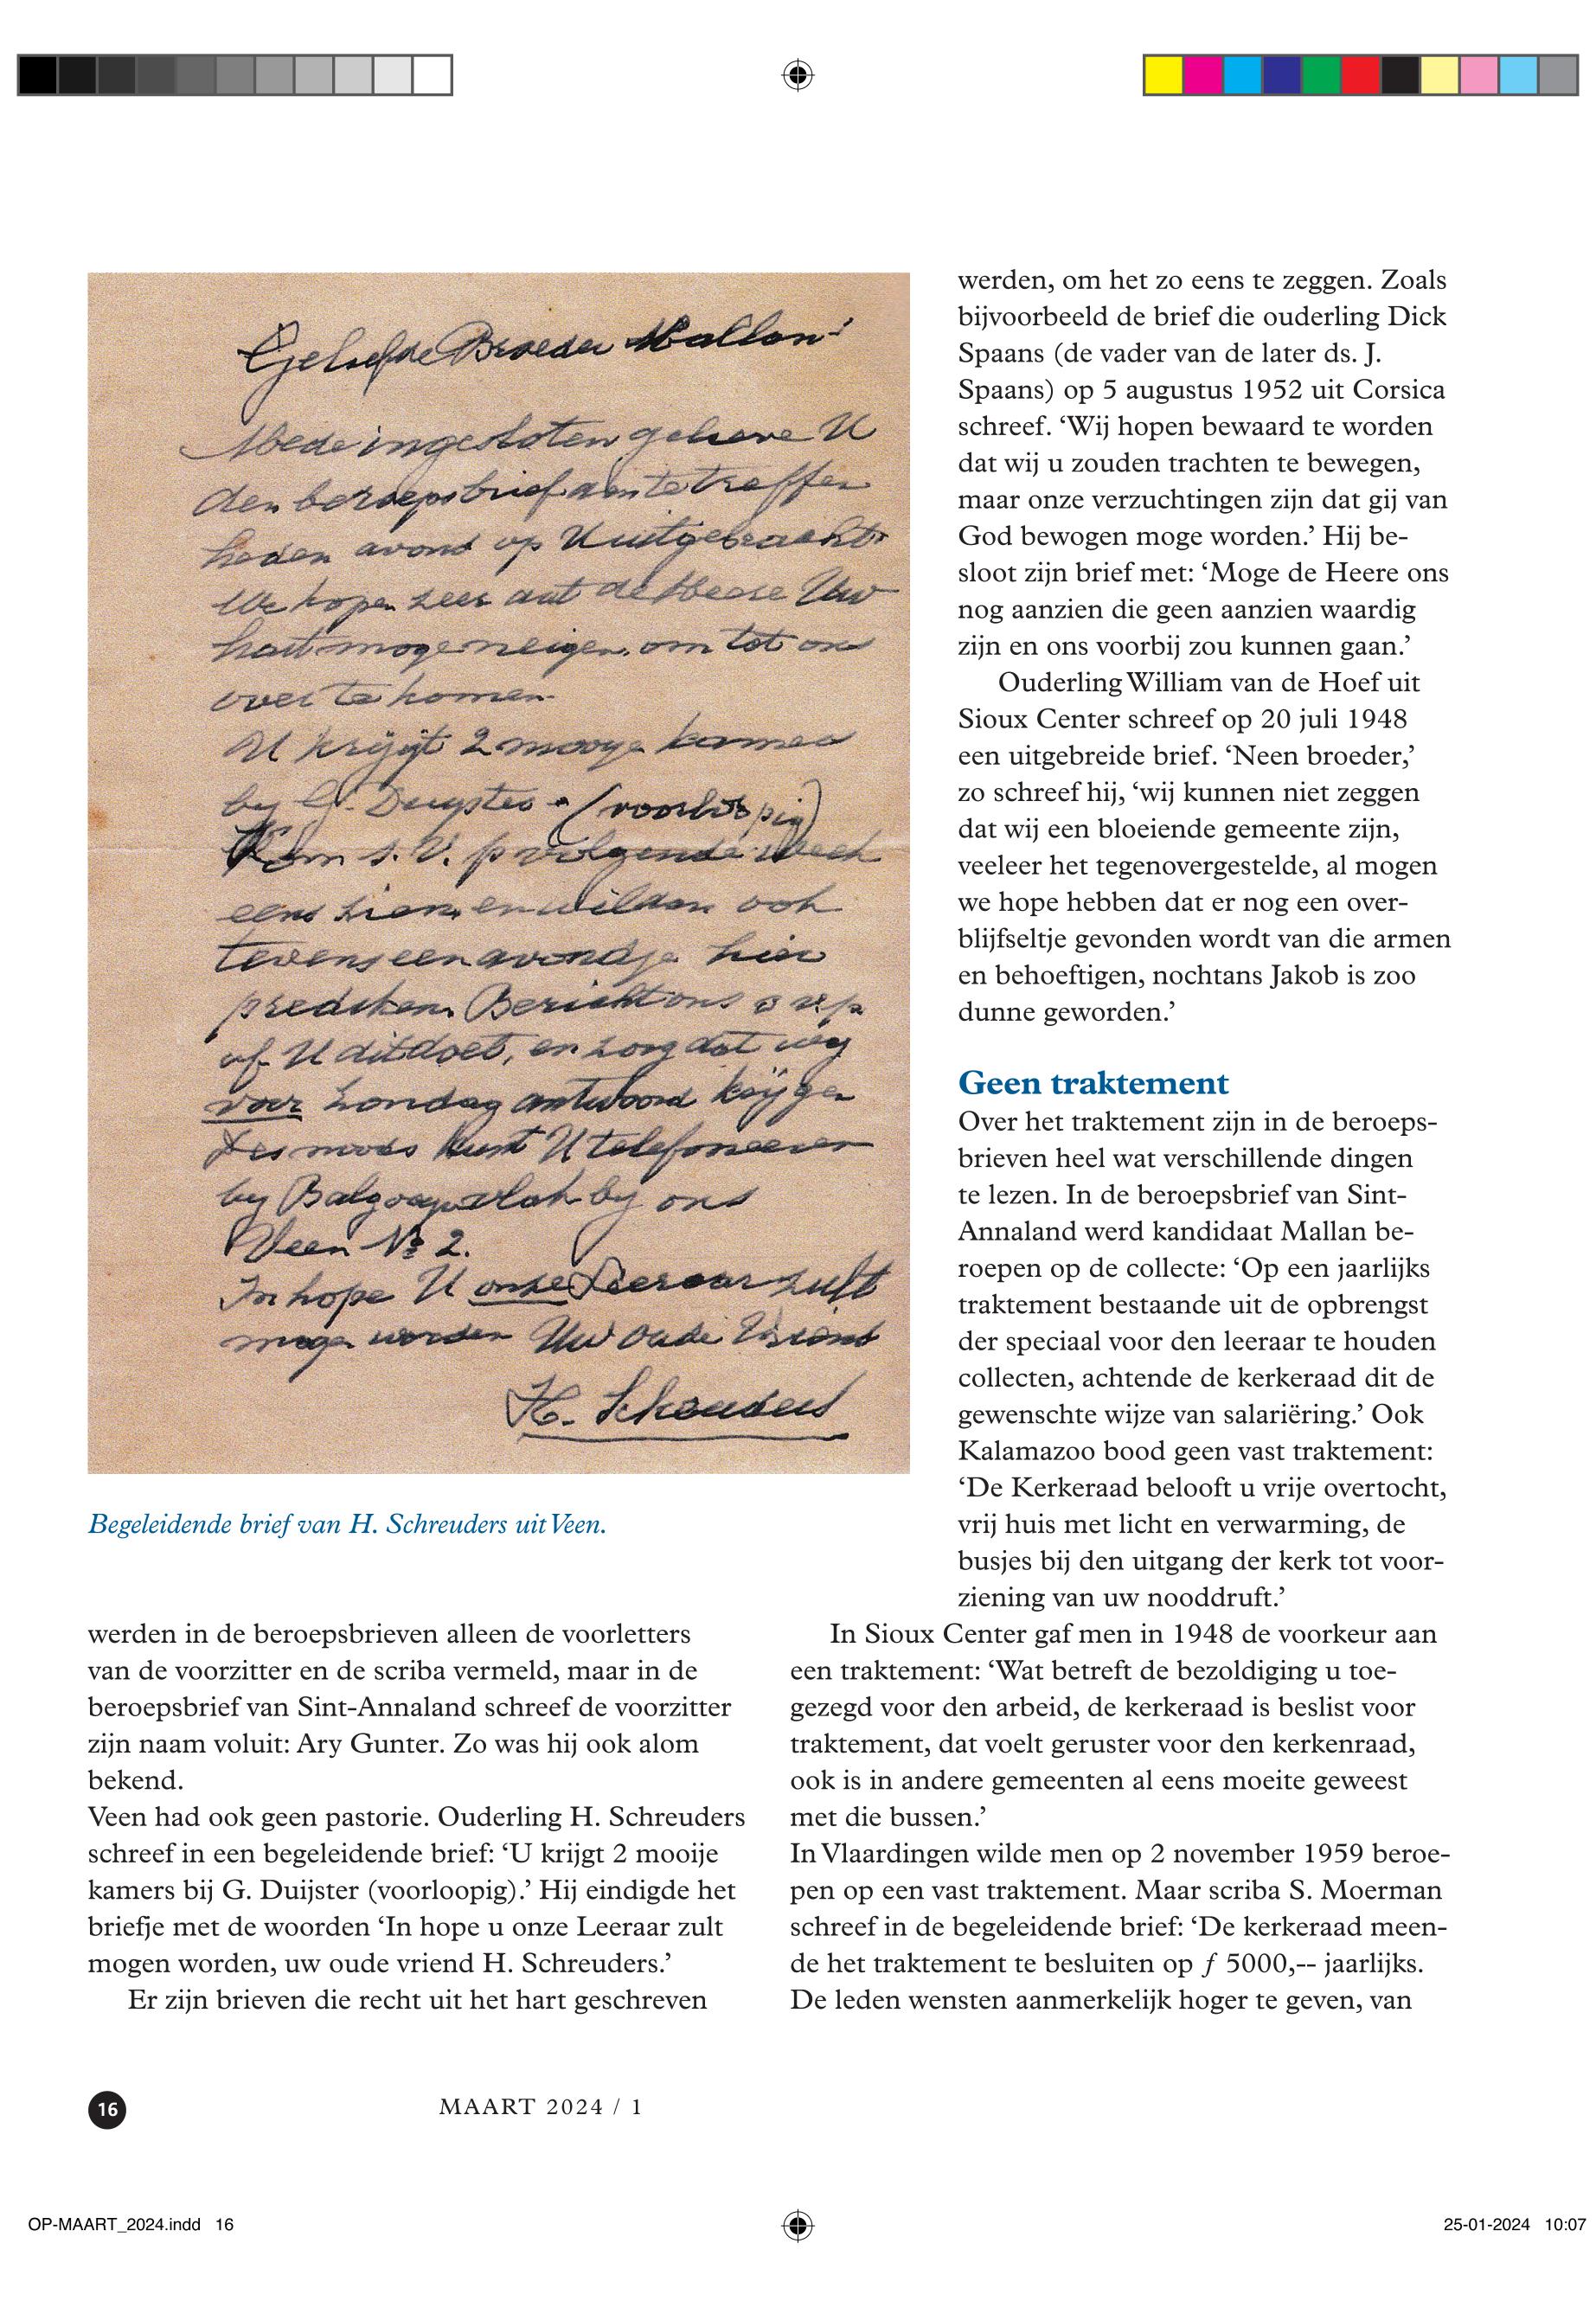 Geliefde Broeder Mallan!
Mede ingesloten gelieve U
den beroepsbrief aan te treffen
heden avond op U uitgebracht.
We hopen zeer dat de Heere Uw
hart moge neigen, om tot ons
over te komen.
U krijgt 2 mooye kamers
by G. Duyster (voorlopig)
Kom s.V. volgende week
eens zien, en wilden ook
tevens een avondje hier
prediken. Bericht ons
of U dit doet, en zorg dat wy
voor Zondag antwoord krijgen
Desnoods kunt U telefoneeren
by vlak by ons
Veen No 2.
In hope U onze Leeraar zult
mogen worden Uw oude Vriend
H. Schreuders
Begeleidende brief van H. Schreuders uit Veen.
werden in de beroepsbrieven alleen de voorletters
van de voorzitter en de scriba vermeld, maar in de
beroepsbrief van Sint-Annaland schreef de voorzitter
zijn naam voluit: Ary Gunter. Zo was hij ook alom
bekend.
Veen had ook geen pastorie. Ouderling H. Schreuders
schreef in een begeleidende brief: ‘U krijgt 2 mooije
kamers bij G. Duijster (voorloopig).’ Hij eindigde het
briefje met de woorden ‘In hope u onze Leeraar zult
mogen worden, uw oude vriend H. Schreuders.’
Er zijn brieven die recht uit het hart geschreven
werden, om het zo eens te zeggen. Zoals
bijvoorbeeld de brief die ouderling Dick
Spaans (de vader van de later ds. J.
Spaans) op 5 augustus 1952 uit Corsica
schreef. ‘Wij hopen bewaard te worden
dat wij u zouden trachten te bewegen,
maar onze verzuchtingen zijn dat gij van
God bewogen moge worden.’ Hij be-
sloot zijn brief met: ‘Moge de Heere ons
nog aanzien die geen aanzien waardig
zijn en ons voorbij zou kunnen gaan.’
Ouderling William van de Hoef uit
Sioux Center schreef op 20 juli 1948
een uitgebreide brief. ‘Neen broeder,’
zo schreef hij, ‘wij kunnen niet zeggen
dat wij een bloeiende gemeente zijn,
veeleer het tegenovergestelde, al mogen
we hope hebben dat er nog een over-
blijfseltje gevonden wordt van die armen
en behoeftigen, nochtans Jakob is zoo
dunne geworden.’
Geen traktement
Over het traktement zijn in de beroeps-
brieven heel wat verschillende dingen
te lezen. In de beroepsbrief van Sint-
Annaland werd kandidaat Mallan be-
roepen op de collecte: ‘Op een jaarlijks
traktement bestaande uit de opbrengst
der speciaal voor den leeraar te houden
collecten, achtende de kerkeraad dit de
gewenschte wijze van salariëring.’ Ook
Kalamazoo bood geen vast traktement:
‘De Kerkeraad belooft u vrije overtocht,
vrij huis met licht en verwarming, de
busjes bij den uitgang der kerk tot voor-
ziening van uw nooddruft.’
In Sioux Center gaf men in 1948 de voorkeur aan
een traktement: ‘Wat betreft de bezoldiging u toe-
gezegd voor den arbeid, de kerkeraad is beslist voor
traktement, dat voelt geruster voor den kerkenraad,
ook is in andere gemeenten al eens moeite geweest
met die bussen.’
In Vlaardingen wilde men op 2 november 1959 beroe-
pen op een vast traktement. Maar scriba S. Moerman
schreef in de begeleidende brief: ‘De kerkeraad meen-
de het traktement te besluiten op ƒ 5000,-- jaarlijks.
De leden wensten aanmerkelijk hoger te geven, van
16
MAART 2024 / 1
OP-MAART_2024.indd 16
25-01-2024 10:07